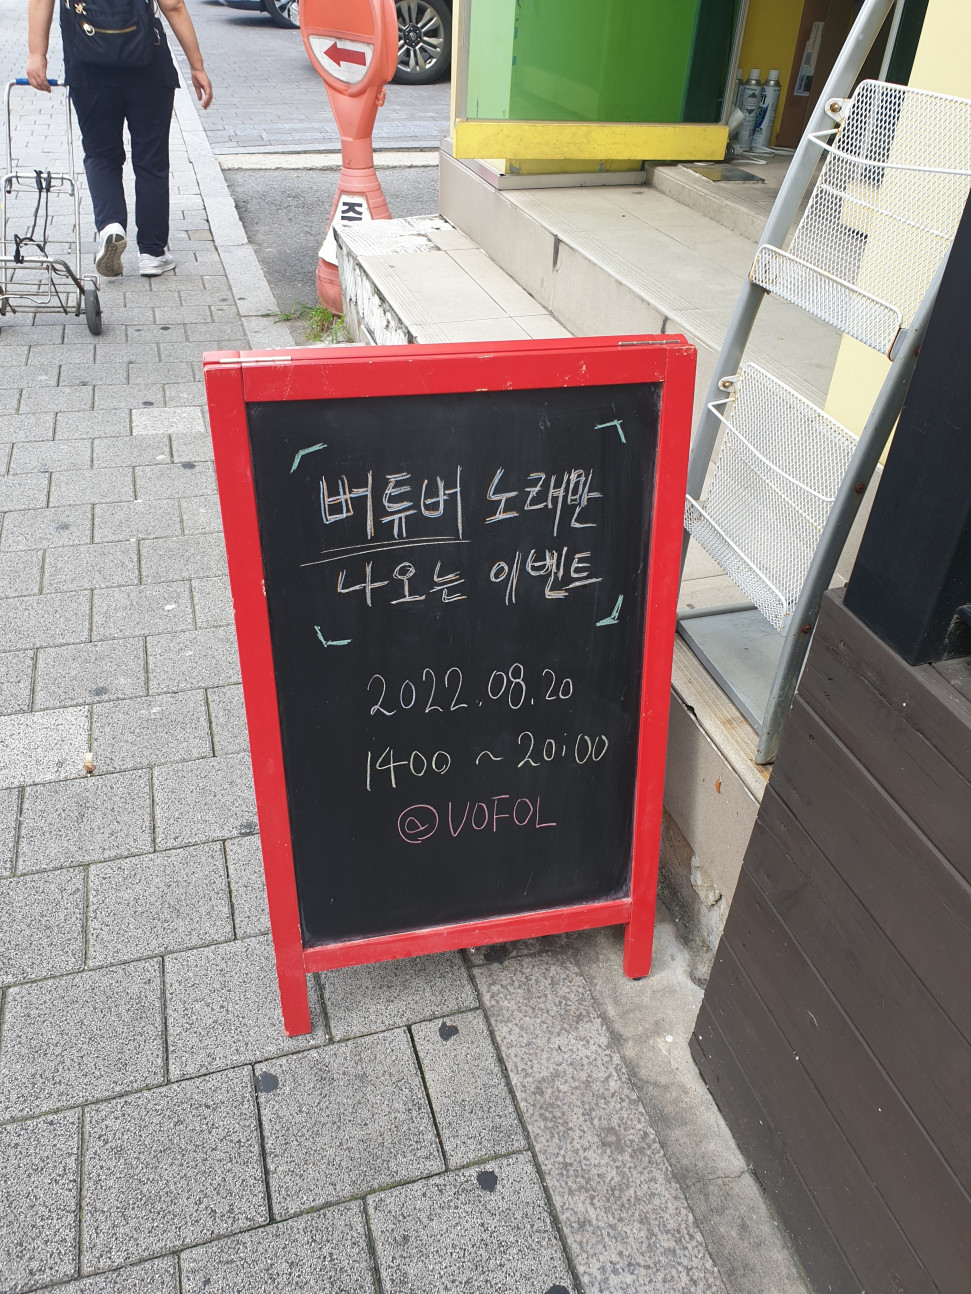 버튜버 노래만
나오는 이벤트
2022.08.20
1400 ~ 20:00
@VOFOL